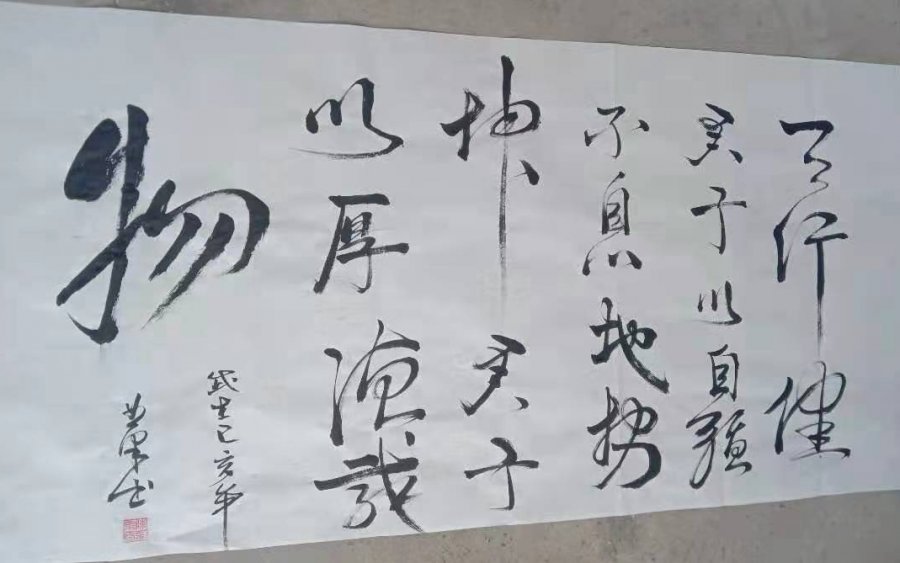 天行健
君子以自强
不息地势
坤君子
以厚德载
物
岁在己亥年